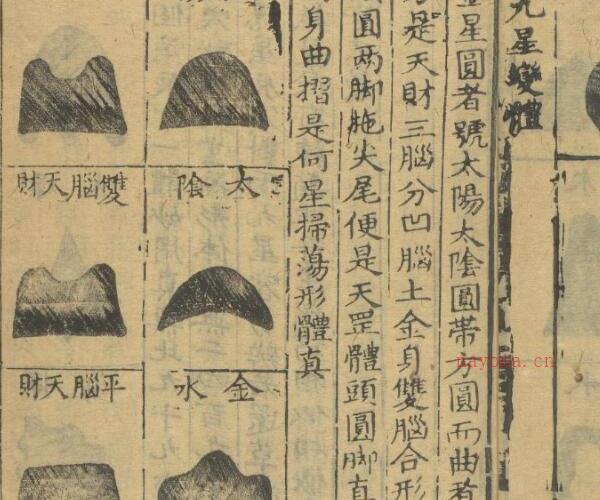 九星變體
金星圓者號太陽太陰圓帶方圓而曲者
是天財三腦分凹腦土金身雙腦合形
圓兩脚拖尖尾便是天罡體頭圓脚直
身曲摺是何星掃蕩形體真
太陰
雙腦天財
金水
平腦天財
nayona.cn